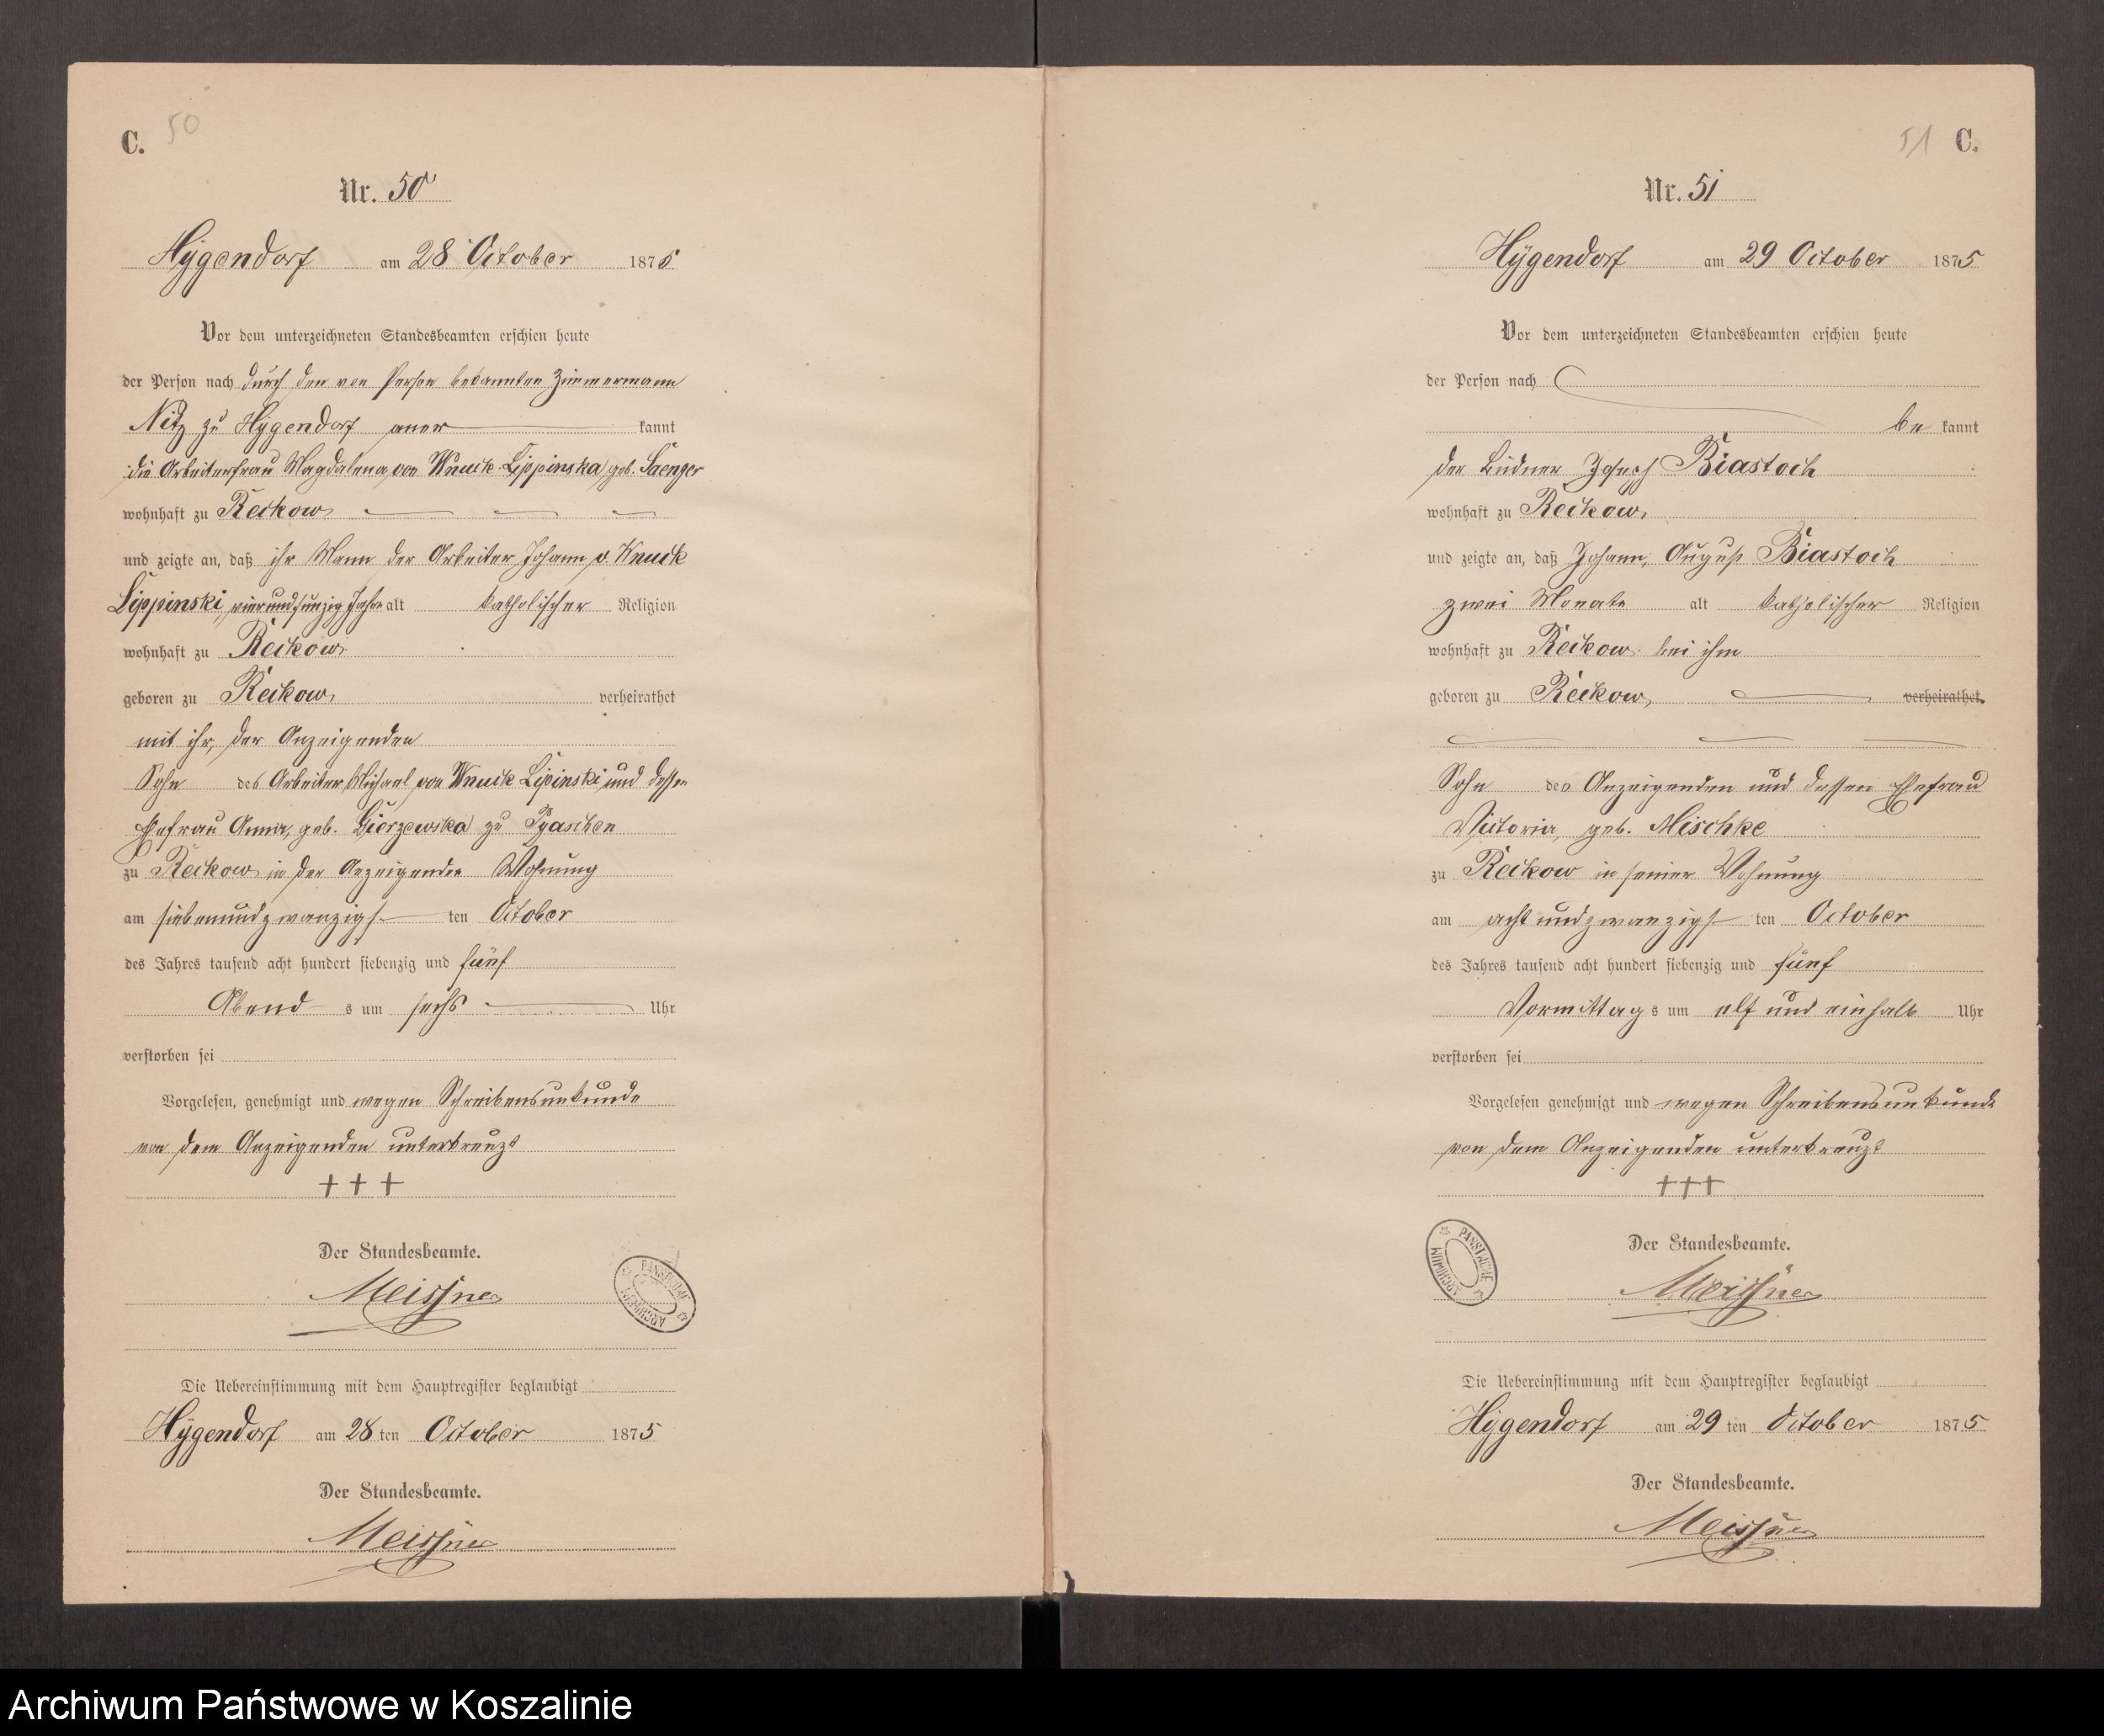 C. 50
Nr. 50
Hÿgendorf am 28 October 1875
Vor dem unterzeichneten Standesbeamten erschien heute
der Person nach durch den von Person bekannten Zimmermann
Nitz zu Hÿgendorf aner kannt
die Arbeiterfrau Magdalena von Wnuck-Lippinska, geb. Saenger
wohnhaft zu Reckow
und zeigte an, daß ihr Mann der Arbeiter Johann v. Wnuck
Lippinski, vierundfunzig Jahre alt katholischer Religion
wohnhaft zu Reckow
geboren zu Reckow, verheirathet
mit ihr, der Anzeigenden
Sohn des Arbeiter Michael von Wnuck Lipinski und dessen
Ehefrau Anna, geb. Gierzewska zu
zu Reckow in der Anzeigenden Wohnung
am siebenundzwanzigs ten October
des Jahres tausend acht hundert siebenzig und fünf
Abend s um sechs Uhr
verstorben sei
Vorgelesen, genehmigt und wegen Schreibensunkunde
von dem Anzeigenden unterkreuzt
+ + +
Der Standesbeamte.
Meissner
Die Uebereinstimmung mit dem Hauptregister beglaubigt
Hÿgendorf am 28 ten October 1875
Der Standesbeamte.
Meissner
ARCHIWUM PAŃSTWOWE
51 C.
Nr. 51
Hÿgendorf am 29 October 1875
Vor dem unterzeichneten Standesbeamten erschien heute
der Person nach
be kannt
der Büdner Joseph Biastoch
wohnhaft zu Reckow,
und zeigte an, daß Johann, August Biastoch
zwei Monate alt katholischer Religion
wohnhaft zu Reckow bei ihm
geboren zu Reckow, verheirathet.
Sohn des Anzeigenden und dessen Ehefrau
Victoria, geb. Mischke
zu Reckow in seiner Wohnung
am achtundzwanzigs ten October
des Jahres tausend acht hundert siebenzig und fünf
Vormittag s um elf und einhalb Uhr
verstorben sei
Vorgelesen genehmigt und wegen Schreibensunkunde
von dem Anzeigenden unterkreuzt
+++
Der Standesbeamte.
Meissner
ARCHIWUM PAŃSTWOWE
Die Uebereinstimmung mit dem Hauptregister beglaubigt
Hÿgendorf am 29 ten October 1875
Der Standesbeamte.
Meissner
Archiwum Państwowe w Koszalinie